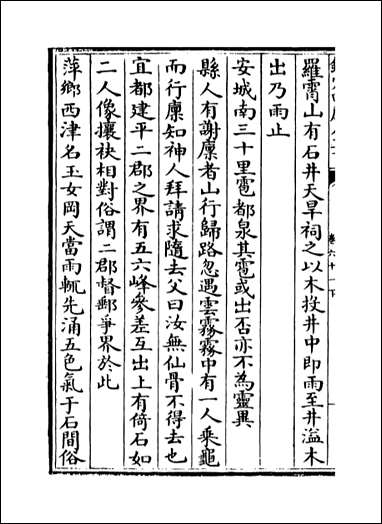 羅霄山有石井天旱祠之以木投井中即雨至井溢木
出乃雨止
安城南三十里雹都泉其雹或出否亦不為靈異
縣人有謝廩者山行歸路忽遇雲霧霧中有一人乗龜
而行廩知神人拜請求隨去父曰汝無仙骨不得去也
宜都建平二郡之界有五六峰參差互出上有倚石如
二人像攘袂相對俗謂二郡督郵爭界於此
萍鄉西津名玉女岡天當雨輒先涌五色氣于石間俗
卷六十一下